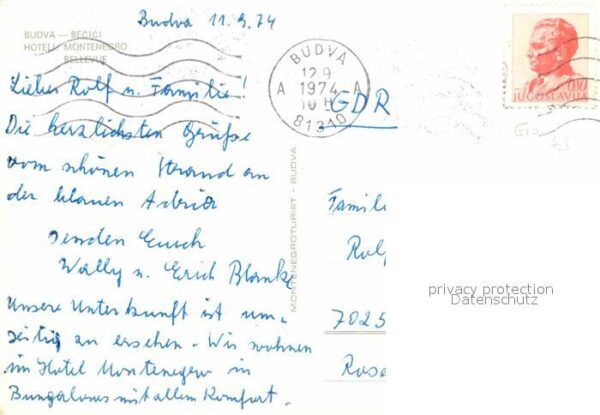 Budva 11.9.74
BUDVA — BEČIĆI
HOTELI MONTENEGRO
BELLEVUE
Lieber Rolf u. Familie!
Die herzlichsten Grüße
vom schönen Strand an
der blauen Adria
senden Euch
Wally u. Erich Blanke
Unsere Unterkunft ist um-
seitig zu ersehen. Wir wohnen
im Hotel Montenegro in
Bungalows mit allem Komfort.
MONTENEGROTURIST - BUDVA
BUDVA
12 9
A 1974 A
10 H
81310
0,80
JUGOSLAVIJA
GDR
Famili
Rolf
7025
Rose
privacy protection
Datenschutz